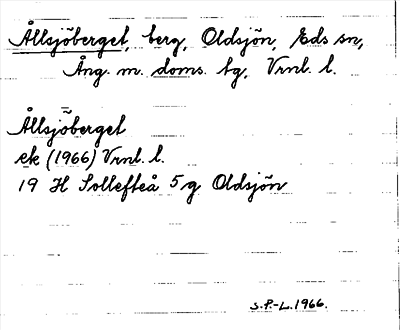 Ållsjöberget, berg, Oldsjön, Eds sn,
Ång. m. doms. tg, Vrnl. l.
Ållsjöberget
ek (1966) Vrnl. l.
19 H Sollefteå 5 g Oldsjön
S.P-L. 1966.